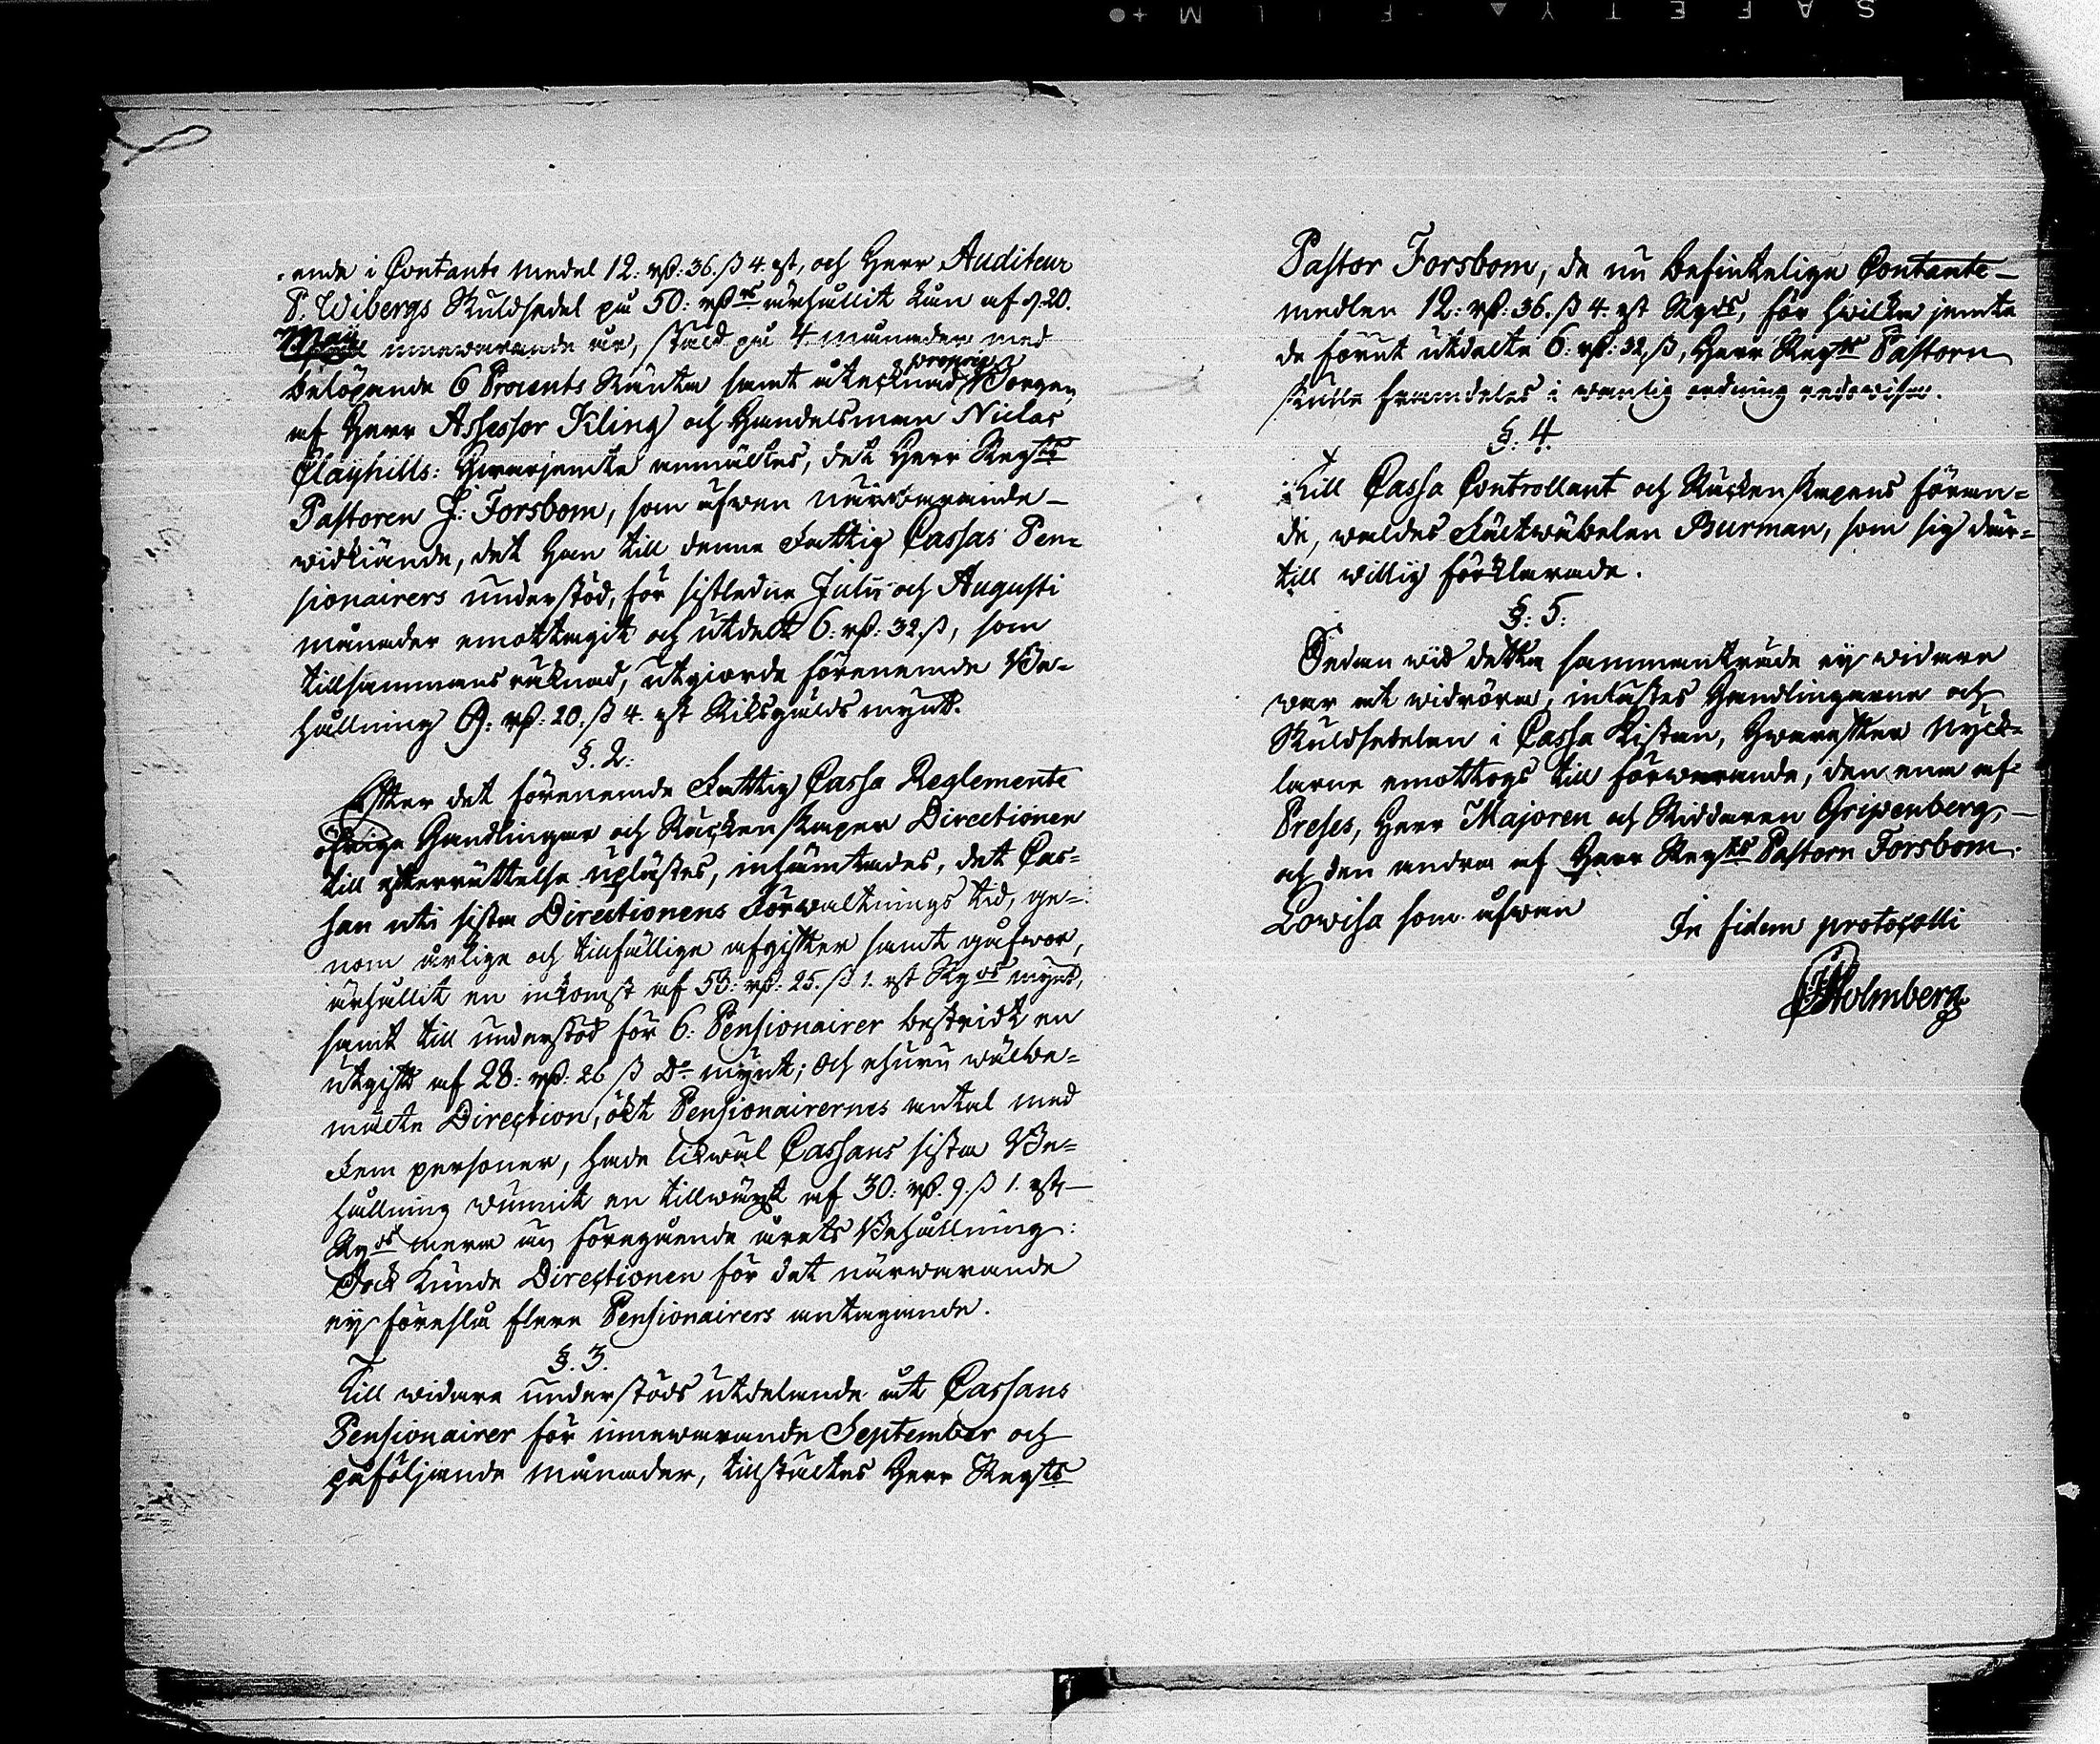 ende i Contante medel 12: rß: 36. ß 4. rst, och Herr Auditeur
P. Wibergs Skuldsedel på 50: rß rs ärhållit Lån af d. 20.
Maij innewarande år, stäld på 4. månader med
belöpande 6 Procents Ränta samt åtecknad proprie Borgen
af Herr Assessor Kling och Handelsman Niclas
Clayhills: Hwarjemte anmältes, det Herr Regts
Pastoren J: Forsbom, som äfwen närwarande
widkiände, det Han till denne Fattig Cassas Pen=
sionairers understöd, för sistledne Julii och Augusti
månader emottagit och utdelt 6: rß: 32. ß, som
tillsammans räknad, utgiorde förenemde Be=
hållning 69: rß: 20. ß 4. rst Riksgälds mynt.
§. 2:
Efter det förenemde Fattig Cassa Reglemente
öfrige Handlingar och Räckenskaper Directionen
till efterrättelse uplästes, inhämtades, det Cas=
san uti sista Directionens Förwaltnings tid, ge=
nom årlige och tillfällige afgifter samt gåfwor,
ärhållit en inkomst af 58: rß: 25. ß 1. rst Rgds mynt,
samt till understöd för 6: Pensionairer bestridt en
utgift af 28: rß: 26 ß Do mynt; Och ehuru wälbe=
mälte Direction, ökt Pensionairernes antal med
Fem personer, hade likwäl Cassans sista Be=
hållning wunnit en tillwäxt af 30: rß. 9. ß 1. rst
Rgds mera än föregående årets Behållning:
Dock kunde Directionen för det närwarande
ey föreslå flere Pensionairers antagande.
§. 3.
Till widare understöds utdelande åt Cassans
Pensionairer för innewarande September och
påföljande månader, tillstältes Herr Regts
Pastor Forsbom, de nu befinteliga Contante
medlen 12: rß: 36. ß 4. rst Rgds, för hwilka jemte
de förut utdelte 6: rß: 32. ß, Herr Regts Pastorn
skulle framdeles i wanlig ordning redowisa.
§: 4.
Till Cassa Controllant och Räckenskapens föran=
de, waldes Fältwäbelen Burman, som sig där=
till willig förklarade.
§: 5:
Sedan wid detta sammanträde ey widare
war at widröra, inlästes Handlingarne och
Skuldsedelen i Cassa Kistan, Hwarefter Nyck=
larne emottogs till förwarande, den ena af
Preses, Herr Majoren och Riddaren Gripenberg,
och den andra af Herr Regts Pastorn Forsbom.
Lowisa som äfwen
In fidem protocolli
Holmberg
SAFETY FILM